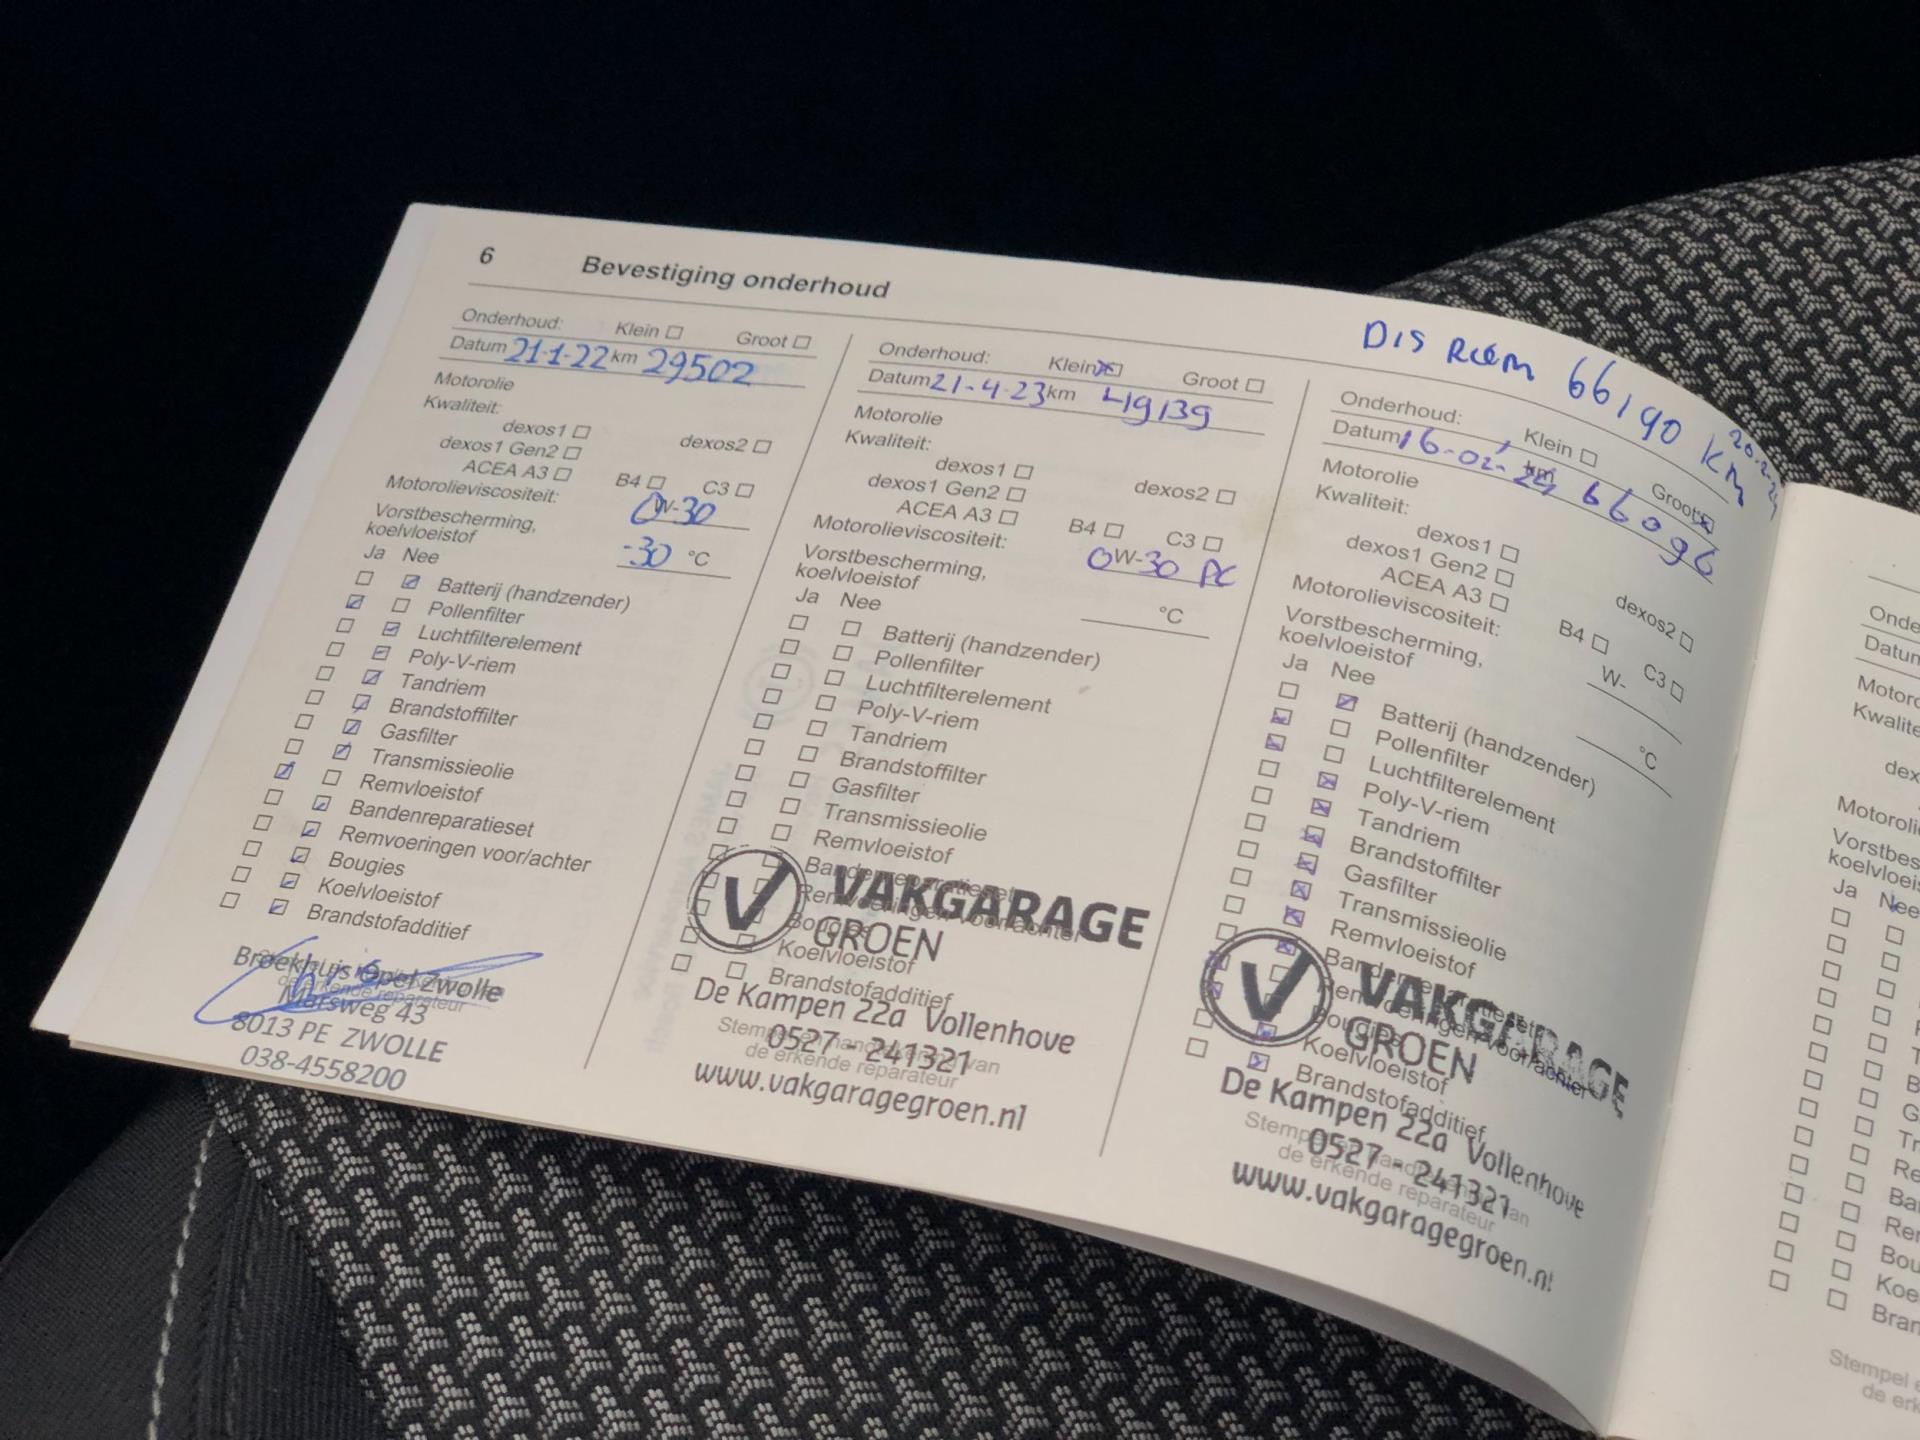 6 Bevestiging onderhoud
Onderhoud: Klein Groot
Datum 21-1-22 km 29502
Motorolie
Kwaliteit:
dexos1 dexos2
dexos1 Gen2
ACEA A3 B4 C3
Motorolieviscositeit: 0W-30
Vorstbescherming,
koelvloeistof -30 °C
Ja Nee
Batterij (handzender)
Pollenfilter
Luchtfilterelement
Poly-V-riem
Tandriem
Brandstoffilter
Gasfilter
Transmissieolie
Remvloeistof
Bandenreparatieset
Remvoeringen voor/achter
Bougies
Koelvloeistof
Brandstofadditief
Broekhuis Opel Zwolle
de erkende reparateur
Marsweg 43
8013 PE ZWOLLE
038-4558200
Onderhoud: Klein Groot
Datum 21-4-23 km 49139
Motorolie
Kwaliteit:
dexos1 dexos2
dexos1 Gen2
ACEA A3 B4 C3
Motorolieviscositeit: 0W-30
Vorstbescherming,
koelvloeistof °C
Ja Nee
Batterij (handzender)
Pollenfilter
Luchtfilterelement
Poly-V-riem
Tandriem
Brandstoffilter
Gasfilter
Transmissieolie
Remvloeistof
Bandenreparatieset
Remvoeringen voor/achter
Bougies
Koelvloeistof
Brandstofadditief
VAKGARAGE
GROEN
De Kampen 22a Vollenhove
Stempel en handtekening van
0527 - 241321
de erkende reparateur
www.vakgaragegroen.nl
DIS RIEM 66190 KM
Onderhoud: Klein Groot
Datum 16-02- km 66096
Motorolie
Kwaliteit:
dexos1 dexos2
dexos1 Gen2
ACEA A3 B4 C3
Motorolieviscositeit: W-
Vorstbescherming,
koelvloeistof °C
Ja Nee
Batterij (handzender)
Pollenfilter
Luchtfilterelement
Poly-V-riem
Tandriem
Brandstoffilter
Gasfilter
Transmissieolie
Remvloeistof
Bandenreparatieset
Remvoeringen voor/achter
Bougies
Koelvloeistof
Brandstofadditief
VAKGARAGE
GROEN
De Kampen 22a Vollenhove
Stempel en handtekening van
0527 - 241321
de erkende reparateur
www.vakgaragegroen.nl
Ja Nee
Stempel